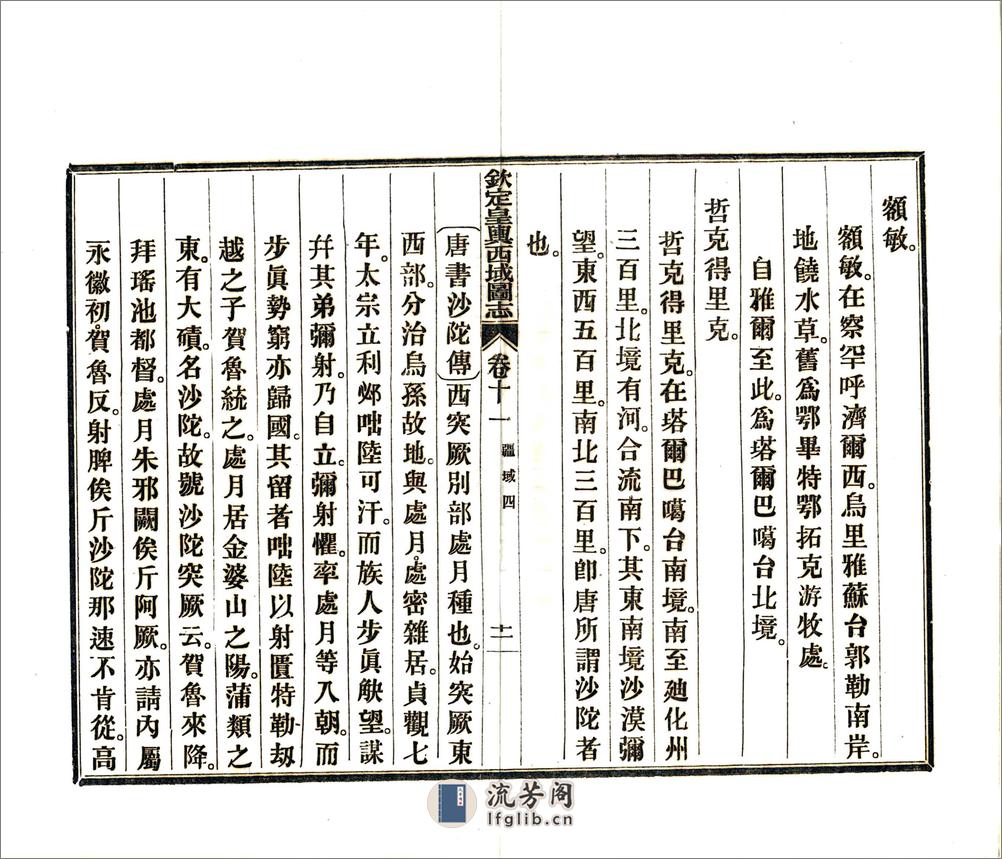 額敏。
額敏。在察罕呼濟爾西。烏里雅蘇台郭勒南岸。
地饒水草。舊爲鄂畢特鄂拓克游牧處。
自雅爾至此。爲塔爾巴噶台北境。
哲克得里克。
哲克得里克。在塔爾巴噶台南境。南至廸化州
三百里。北境有河。合流南下。其東南境沙漠彌
望。東西五百里。南北三百里。卽唐所謂沙陀者
也。
欽定皇輿西域圖志 卷十一 疆域四 十二
〔唐書沙陀傳〕西突厥別部處月種也。始突厥東
西部。分治烏孫故地。與處月。處密雜居。貞觀七
年。太宗立利邲咄陸可汗。而族人步眞觖望。謀
幷其弟彌射。乃自立。彌射懼。率處月等入朝。而
步眞勢窮亦歸國。其留者咄陸以射匱特勒劫
越之子賀魯統之。處月居金婆山之陽。蒲類之
東。有大磧。名沙陀。故號沙陀突厥云。賀魯來降。
拜瑤池都督。處月朱邪闕俟斤阿厥。亦請內屬
永徽初。賀魯反。射脾俟斤沙陀那速不肯從。高
流芳阁
lfglib.cn